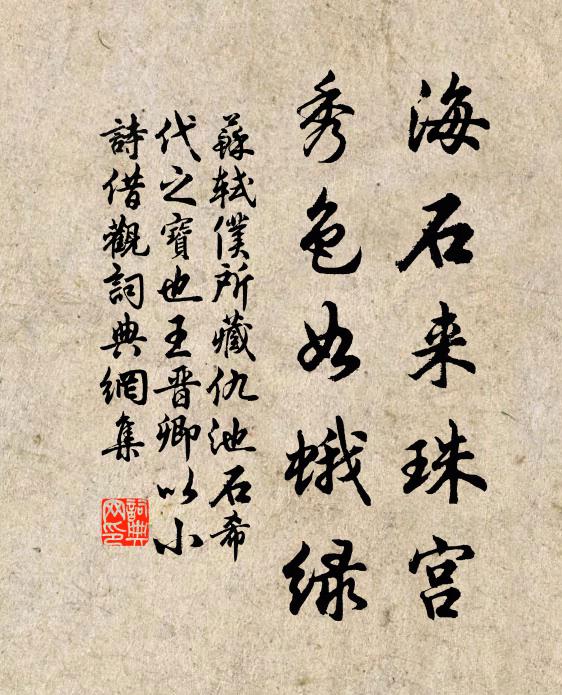 海石来珠宫
秀色如蛾绿
蘇軾僕所藏仇池石希
代之寶也王晋卿以小
詩借觀詞典網集
詞典
网印